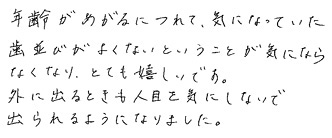 年齢があがるにつれて、気になっていた
歯並びがよくないということが気になら
なくなり、とても嬉しいです。
外に出るときも人目を気にしないで
出られるようになりました。